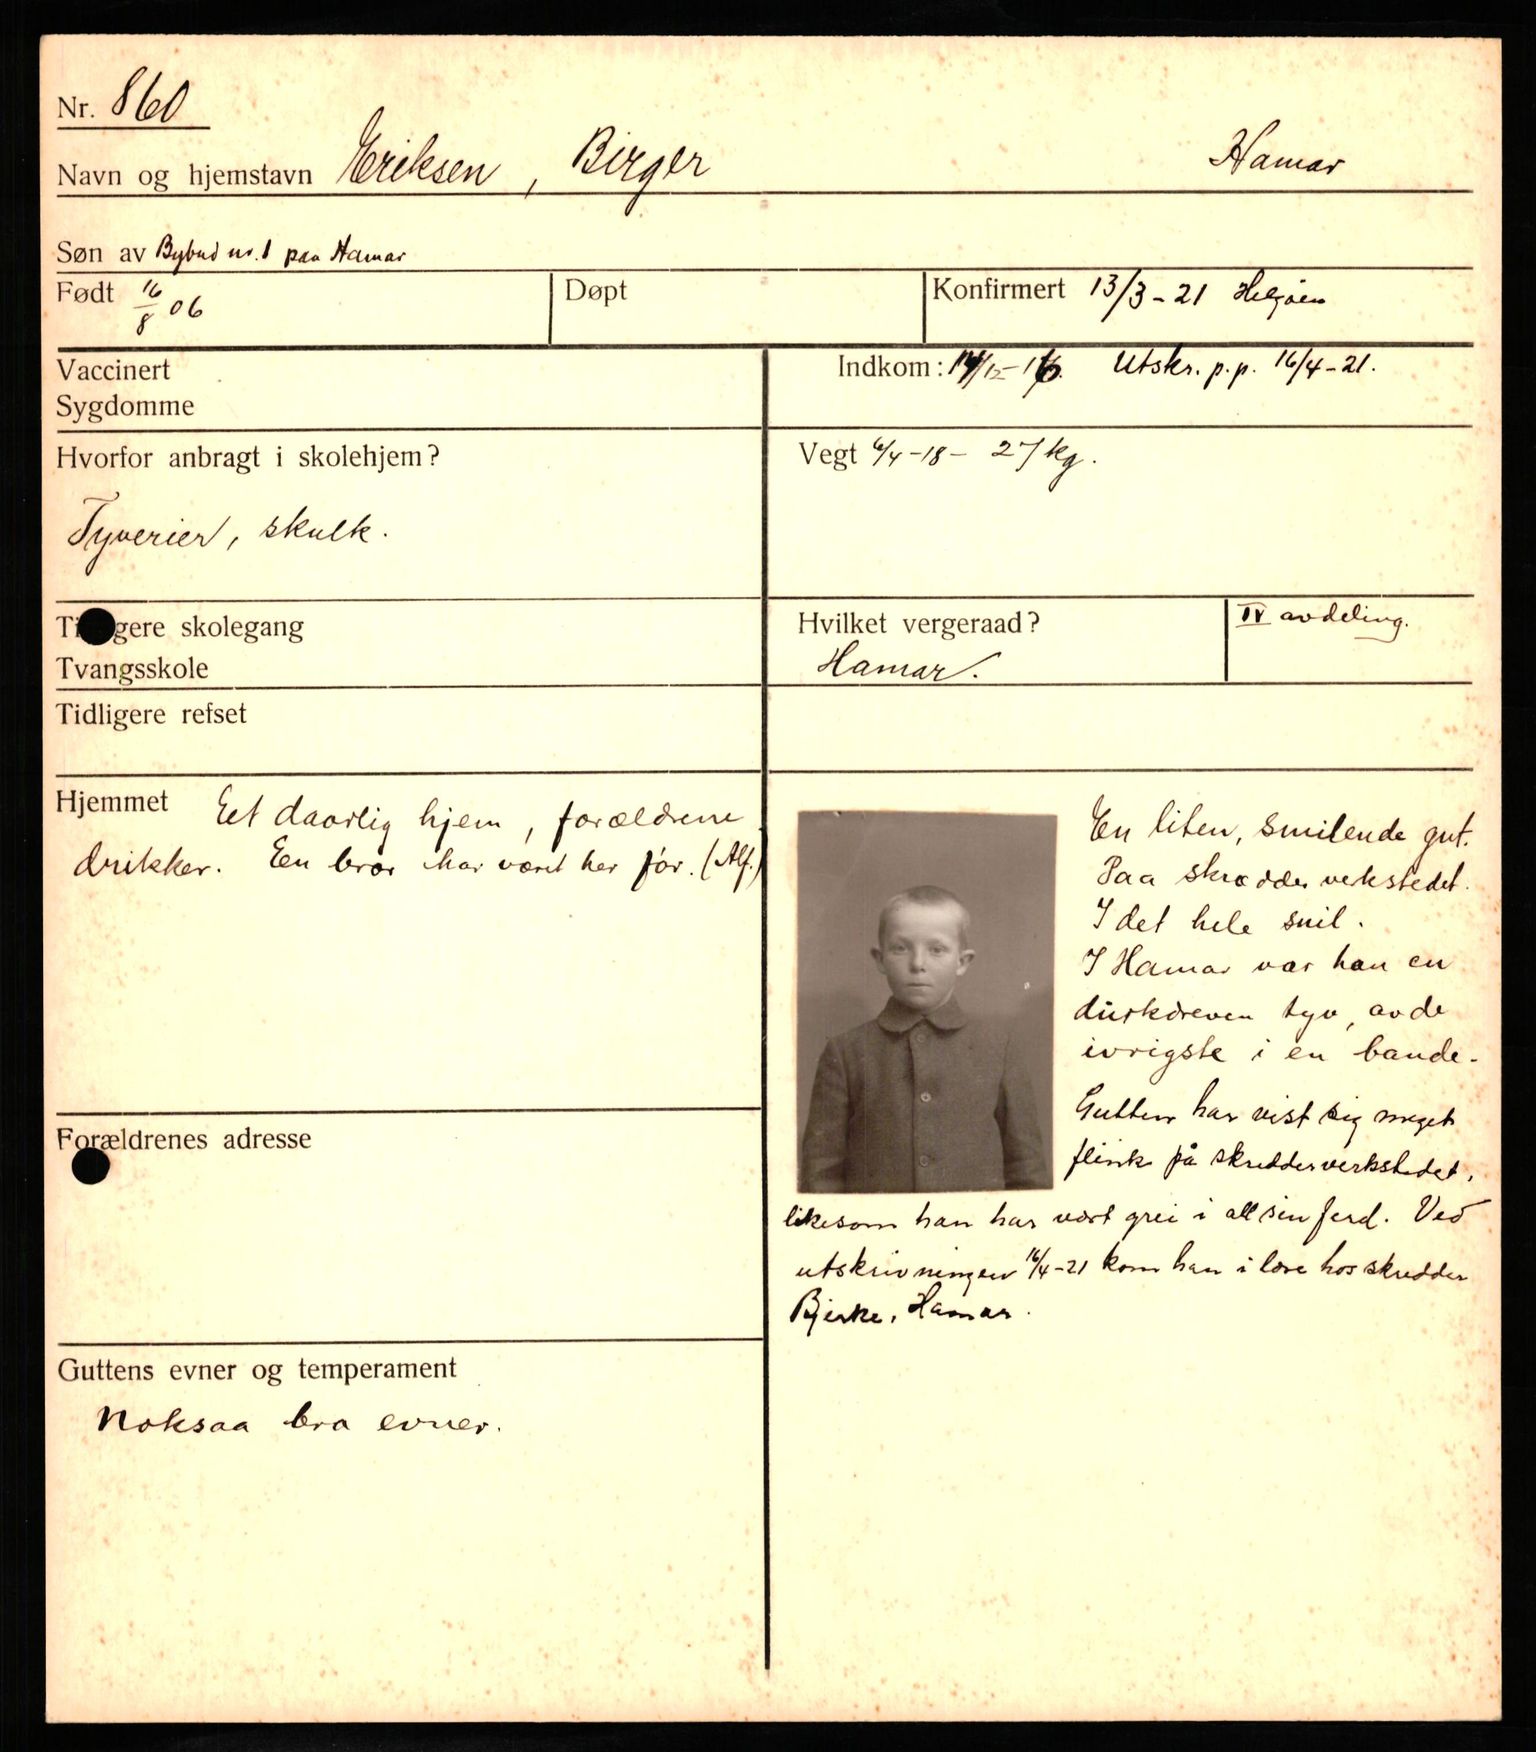 Nr. 860
Navn og hjemstavn Eriksen, Birger Hamar
Søn av Bybud nr. 1 paa Hamar
Født 16/8 06 Døpt Konfirmert 13/3-21 Helgøen
Vaccinert
Sygdomme
Indkom: 14/12-16. Utskr. p.p. 16/4-21.
Hvorfor anbragt i skolehjem?
Tyverier, skulk.
Vegt 6/4-18- 27 kg.
gere skolegang
Tvangsskole
Hvilket vergeraad?
Hamar.
IV avdeling.
Tidligere refset
Hjemmet Eet daarlig hjem, forældrene
drikker. Een bror har været her før. (Alf.)
Forældrenes adresse
Guttens evner og temperament
Noksaa bra evner.
En liten, smilende gut.
Paa skrædderverkstedet.
I det hele snil.
I Hamar var han en
durkdreven tyv, av de
ivrigste i en bande.
Gutten har vist sig meget
flink på skredderverkstedet,
likesom han har vært grei i all sin ferd. Ved
utskrivningen 16/4-21 kom han i lære hos skredder
Bjerke, Hamar.